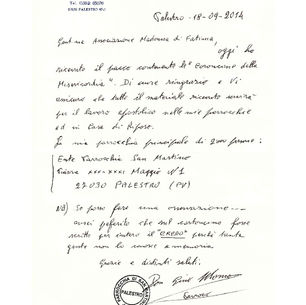 Tel. 0384 65020
27030 PALESTRO PV
Palestro - 18-09-2014
Gent.ma Associazione Madonna di Fatima,
oggi ho
ricevuto il pacco contenente N° Coroncine della
Misericordia". Di cuore ringrazio e Vi
assicuro che tutto il materiale ricevuto servirà
per il lavoro apostolico nelle mie parrocchie
ed in Case di Riposo.
La mia parrocchia principale di 2000 persone:
Ente Parrocchia San Martino
Piazza XXX-XXXI Maggio N°1
27030 PALESTRO (PV)
Se posso fare una osservazione
avrei preferito che sul cartoncino fosse
scritto per intero il "CREDO" perché tanta
gente non lo conosce a memoria
Grazie e distinti saluti.
Don
Parroco
PARROCCHIA DI SAN MARTINO
PALESTRO